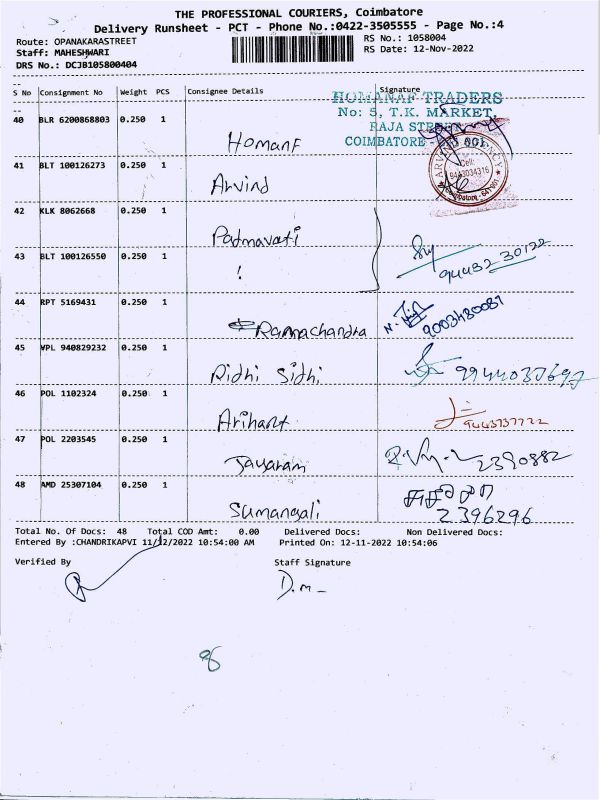 THE PROFESSIONAL COURIERS, Coimbatore
Delivery Runsheet - PCT - Phone No.:0422-3505555 - Page No.:4
Route: OPANAKARASTREET
RS No.: 1058004
Staff: MAHESHWARI
RS Date: 12-Nov-2022
DRS No.: DCJB105800404
S No Consignment No Weight PCS Consignee Details Signature
HOMANAF TRADERS
No: 5, T.K. MARKET,
RAJA STREET
COIMBATORE - 641 001.
40 BLR 6200868803 0.250 1
Homanf
41 BLT 100126273 0.250 1
Arvind
ARVIND AGENCY
Cell:
9443034316
Coimbatore - 641 001
42 KLK 8062668 0.250 1
Padmavati
43 BLT 100126550 0.250 1
!
94432 30122
44 RPT 5169431 0.250 1
Ramachandra
9003480087
45 VPL 940829232 0.250 1
Ridhi Sidhi
46 POL 1102324 0.250 1
Arihant
9443737722
47 POL 2203545 0.250 1
Jayaram
2390882
48 AMD 25307104 0.250 1
Sumangali
2396296
Total No. Of Docs: 48 Total COD Amt: 0.00 Delivered Docs: Non Delivered Docs:
Entered By :CHANDRIKAPVI 11/12/2022 10:54:00 AM Printed On: 12-11-2022 10:54:06
Verified By
Staff Signature
D.m_